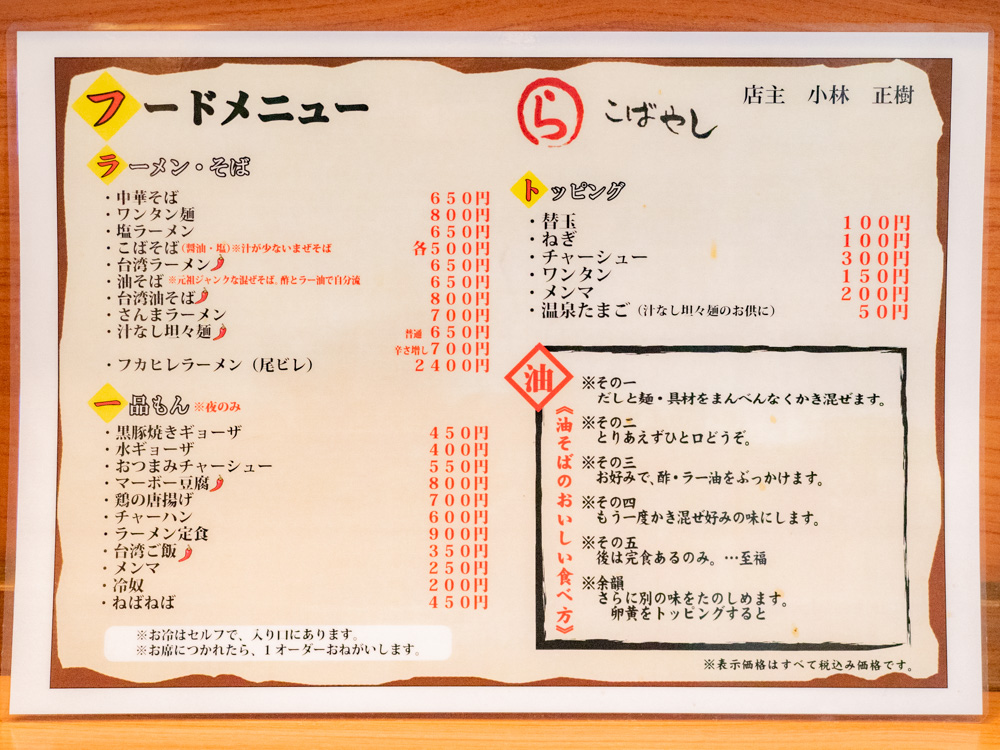 フードメニュー
ラーメン・そば
・中華そば 650円
・ワンタン麺 800円
・塩ラーメン 650円
・こばそば(醤油・塩)※汁が少ないまぜそば 各500円
・台湾ラーメン 650円
・油そば ※元祖ジャンクな混ぜそば。酢とラー油で自分流 650円
・台湾油そば 800円
・さんまラーメン 700円
・汁なし坦々麺 普通 650円
辛さ増し700円
・フカヒレラーメン(尾ビレ) 2400円
一品もん ※夜のみ
・黒豚焼きギョーザ 450円
・水ギョーザ 400円
・おつまみチャーシュー 550円
・マーボー豆腐 800円
・鶏の唐揚げ 700円
・チャーハン 600円
・ラーメン定食 900円
・台湾ご飯 350円
・メンマ 250円
・冷奴 200円
・ねばねば 450円
※お冷はセルフで、入り口にあります。
※お席につかれたら、1オーダーおねがいします。
ら こばやし
店主 小林 正樹
トッピング
・替玉 100円
・ねぎ 100円
・チャーシュー 300円
・ワンタン 150円
・メンマ 200円
・温泉たまご(汁なし坦々麺のお供に) 50円
油
《油そばのおいしい食べ方》
※その一
だしと麺・具材をまんべんなくかき混ぜます。
※その二
とりあえずひと口どうぞ。
※その三
お好みで、酢・ラー油をぶっかけます。
※その四
もう一度かき混ぜ好みの味にします。
※その五
後は完食あるのみ。…至福
※余韻
さらに別の味をたのしめます。
卵黄をトッピングすると
※表示価格はすべて税込み価格です。